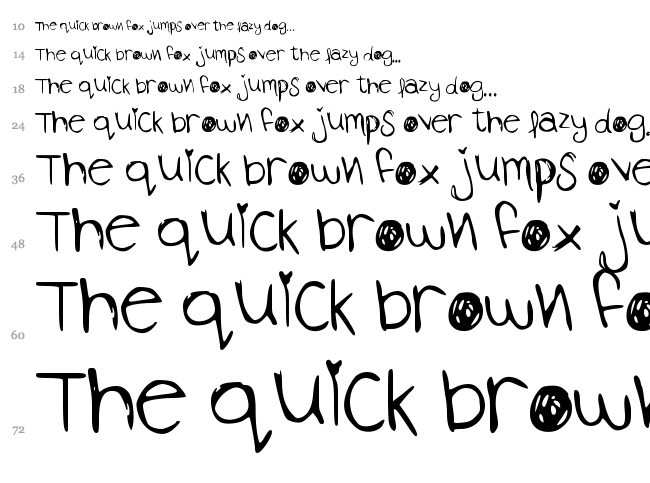 10 The quick brown fox jumps over the lazy dog...
14 The quick brown fox jumps over the lazy dog...
18 The quick brown fox jumps over the lazy dog...
24 The quick brown fox jumps over the lazy dog.
36 The quick brown fox jumps ove
48 The quick brown fox ju
60 The quick brown fo
72 The quick brow